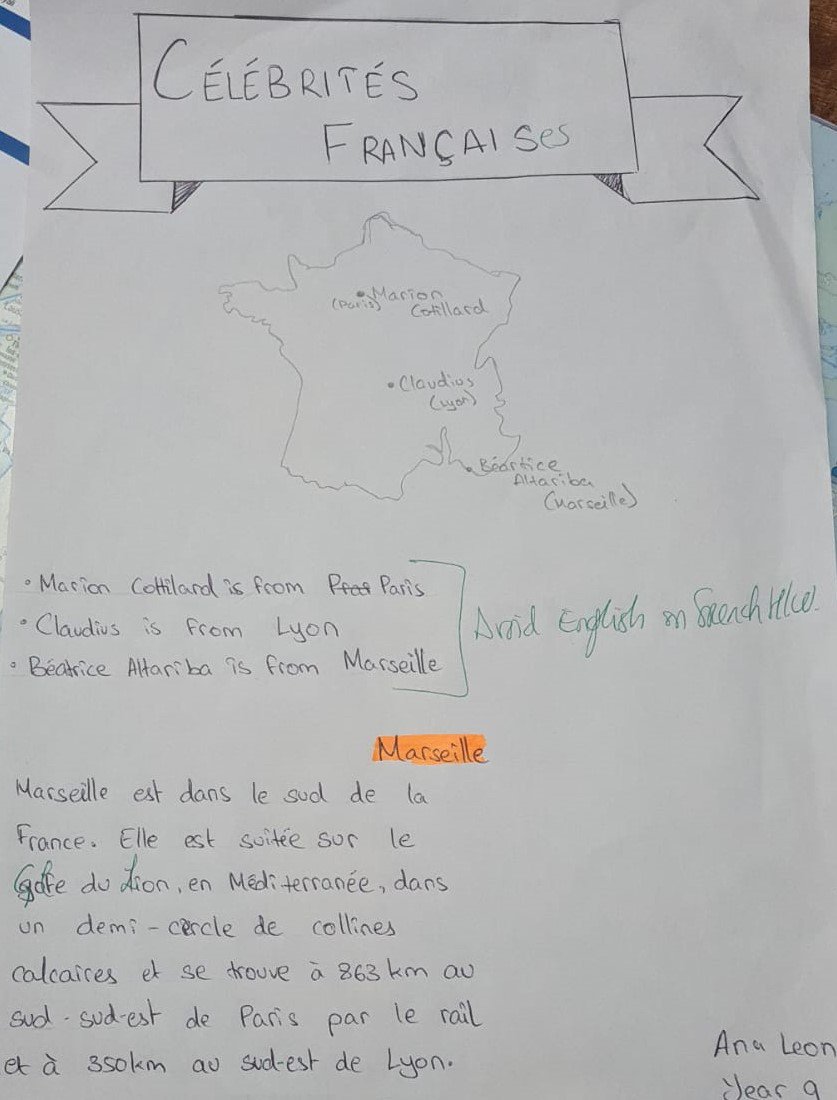 CÉLÉBRITÉS
FRANÇAISes
Marion
(Paris)
Cotillard
Claudius
(Lyon)
Béartice
Altariba
(Marseille)
• Marion Cottilard is from Paris
• Claudius is from Lyon
• Béatrice Altariba is from Marseille
Avoid English on French
Marseille
Marseille est dans le sud de la
France. Elle est suitée sur le
Golfe du Lion, en Méditerranée, dans
un demi-cercle de collines
calcaires et se trouve à 863 km au
sud-sud-est de Paris par le rail
et à 350km au sud-est de Lyon.
Ana Leon
Year 9